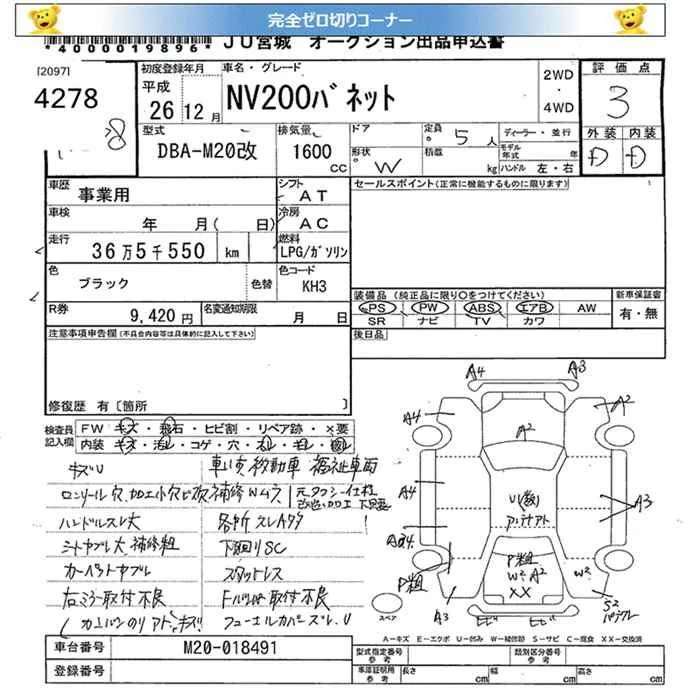 完全ゼロ切りコーナー
*4000019896* JU宮城 オークション出品申込書
[2097]
4278
初度登録年月
平成
26 12月
車名・グレード
NV200バネット
2WD
・
4WD
評価点
3
外装 内装
D D
型式
DBA-M20改
排気量
1600
CC
ドア
形状 W
定員 5 人
積載 kg
ディーラー・並行
モデル年式 年
ハンドル 左・右
車歴 事業用
シフト AT
車検 年 月( 日)
冷房 AC
走行 36万5千550 km
燃料 LPG/ガソリン
色 ブラック 色替
色コード KH3
R券 9,420円
名変通知期限 月 日
セールスポイント(正常に機能するものに限ります)
装備品 (純正品に限り○をつけてください)
PS PW ABS エアB AW
SR ナビ TV カワ
新車保証書
有・無
後日品
注意事項申告欄(不具合内容等は具体的に記入して下さい)
修復歴 有〔箇所 〕
検査員記入欄
FW キズ・飛石・ヒビ割・リペア跡・×要
内装
コゲ・穴
キズU
車いす移動車 福祉車両
補修Wムラ
元タクシー仕様
ハンドルスレ大
各所スレAタタ
下回りSC
カーペットヤブレ
スタッドレス
右ミラー取付不良
取付不良
フューエルカバー
A4 A3
A4 A2
A2
A4
U(数)
A3
P粗
P粗
W2 A2
XX
W2
A3
S2
スペア
A-キズ E-エクボ U-凹み W-補修跡 S-サビ C-腐食 XX-交換済
車台番号 M20-018491
登録番号
型式指定番号
参考
類別区分番号
参考
車庫証明用
参考
長さ cm
幅 cm
高さ cm